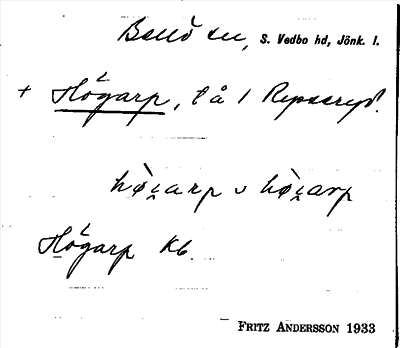 Bellö sn, S. Vedbo hd, Jönk. l.
+ Högarp, t å 1 Repperyd.
hø̀i̯arp ᴗ hø̀i̯arp
Högarp Kb.
FRITZ ANDERSSON 1933